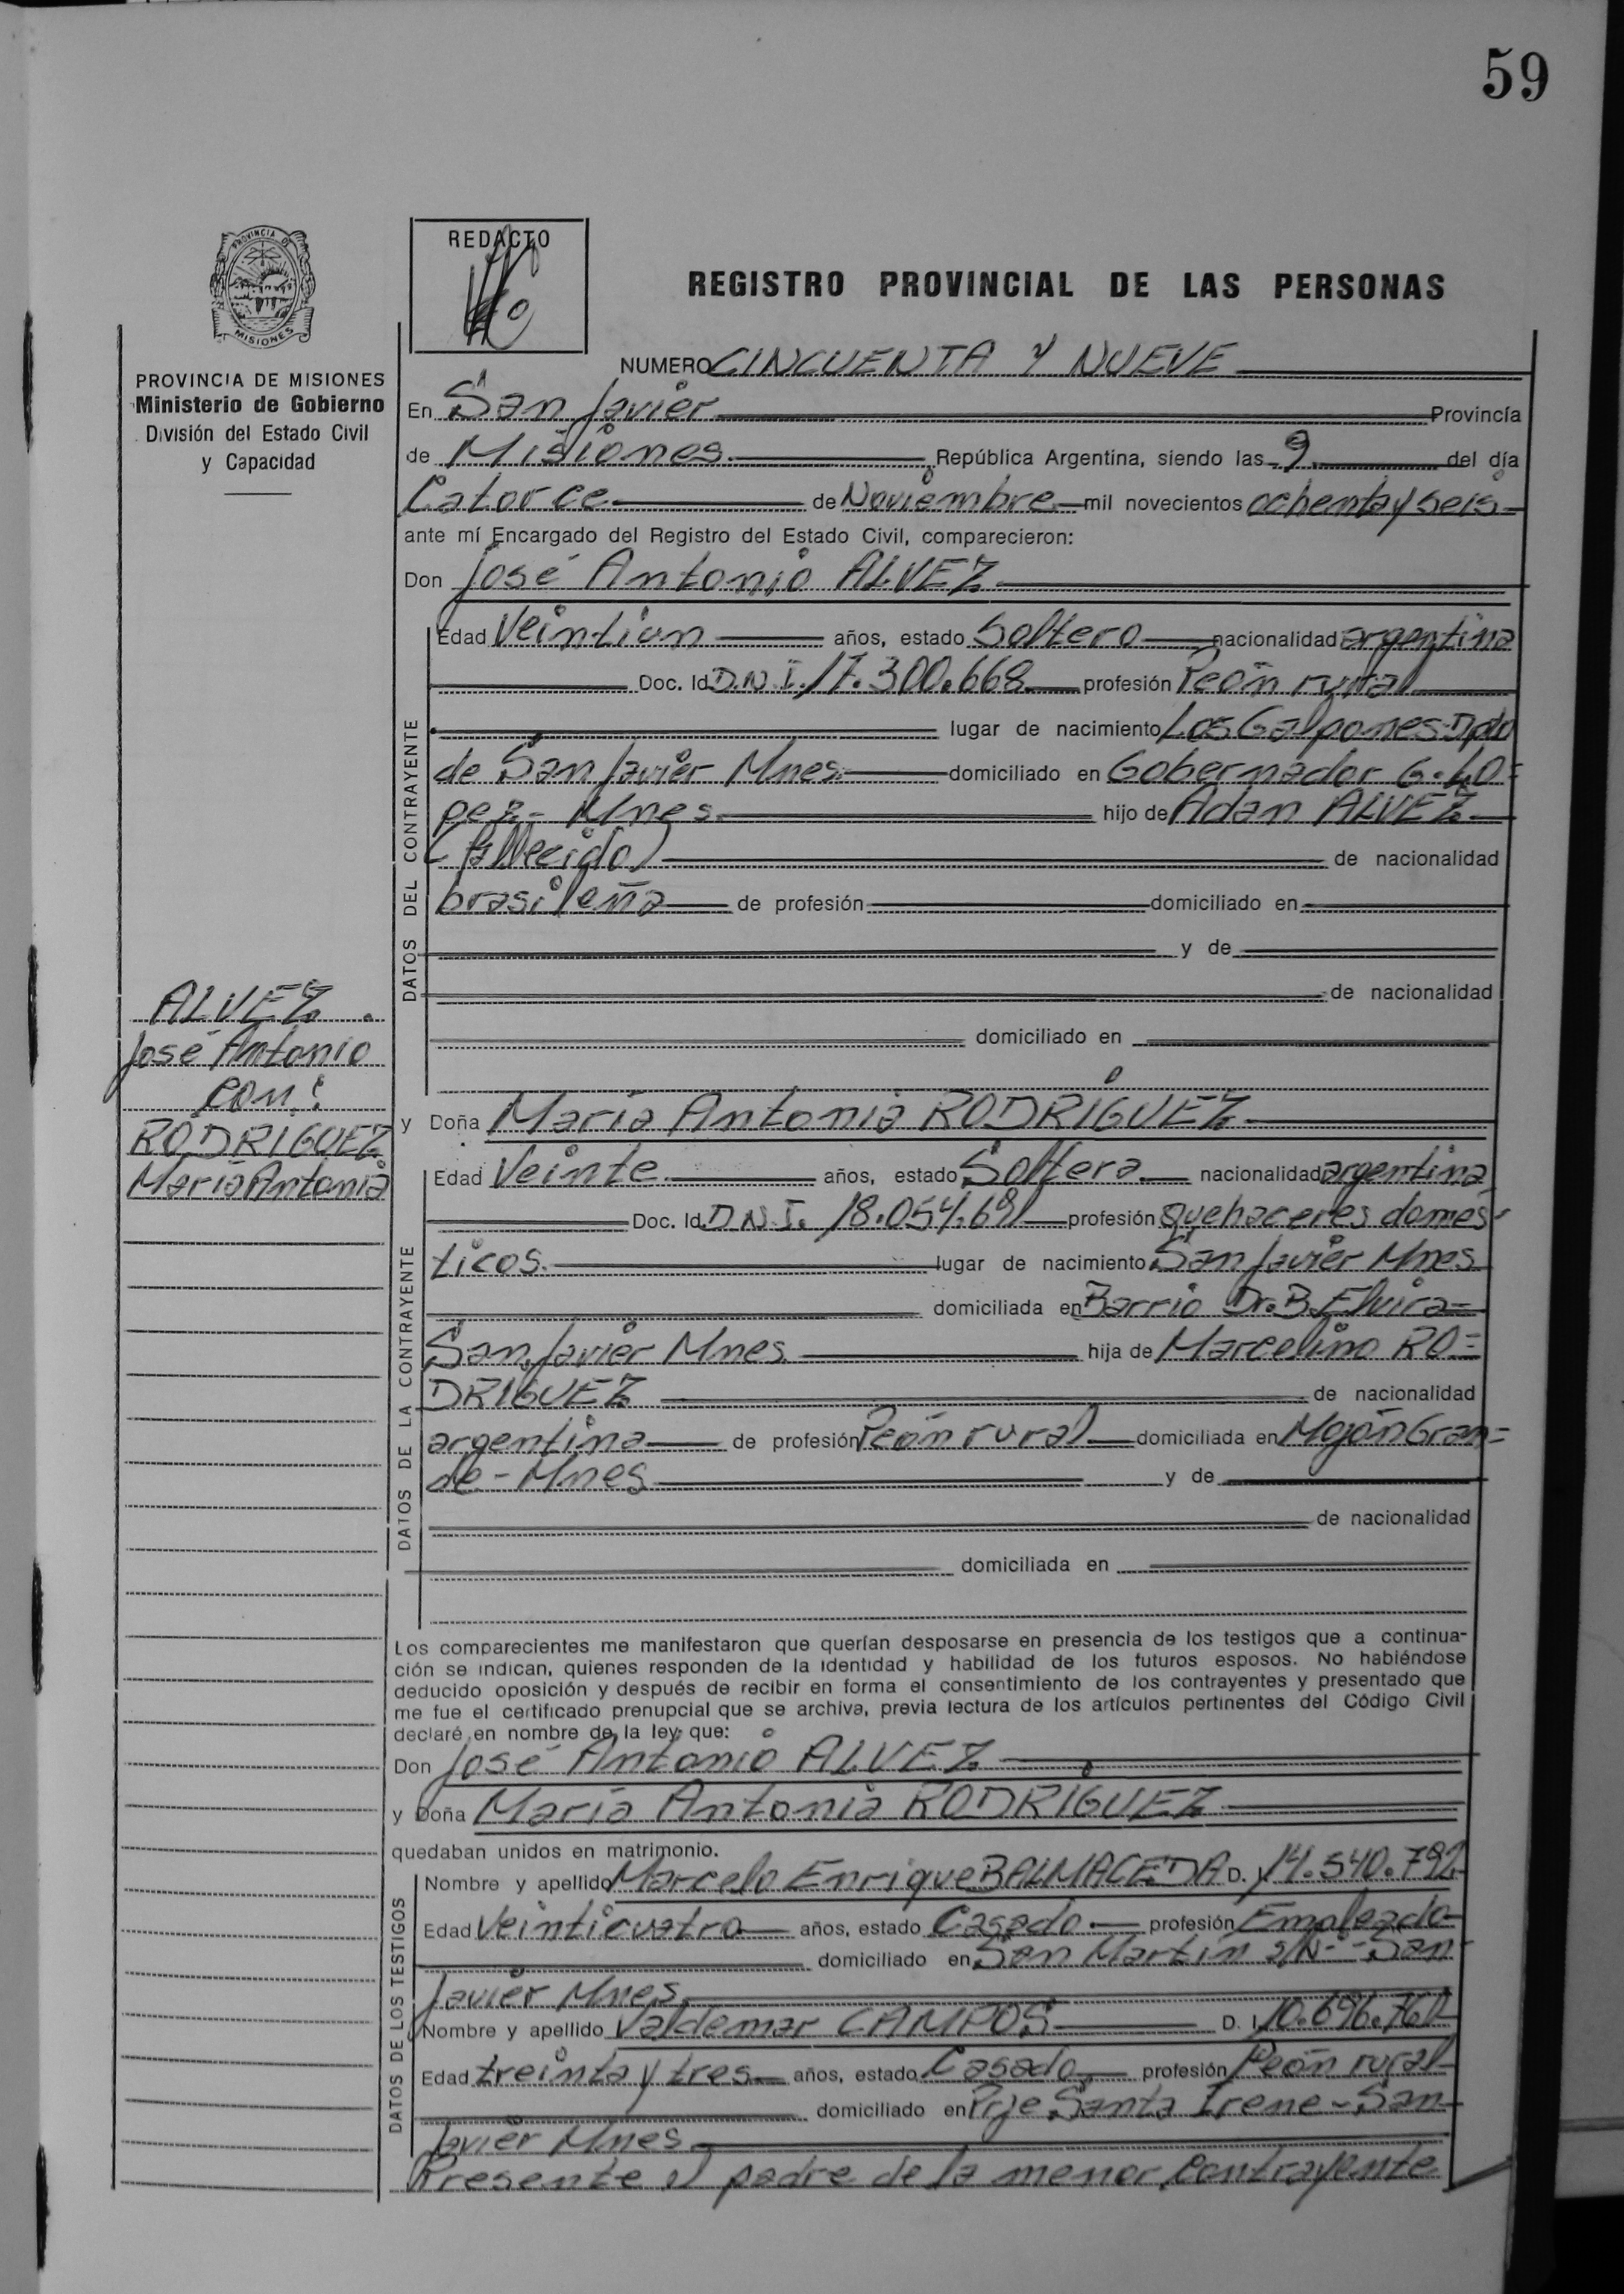 59
PROVINCIA DE
MISIONES
REDACTO
REGISTRO PROVINCIAL DE LAS PERSONAS
PROVINCIA DE MISIONES
Ministerio de Gobierno
División del Estado Civil
y Capacidad
ALVEZ
José Antonio
con:
RODRIGUEZ
María Antonia
NUMERO CINCUENTA Y NUEVE
En San Javier Provincia
de Misiones República Argentina, siendo las 9 del día
Catorce de Noviembre mil novecientos ochenta y seis
ante mí Encargado del Registro del Estado Civil, comparecieron:
Don José Antonio ALVEZ
DATOS DEL CONTRAYENTE
Edad Veintiun años, estado Soltero nacionalidad argentina
Doc. Id. D.N.I. 17.300.668 profesión Peón rural
lugar de nacimiento Los Galpones Dpdo
de San Javier Mnes. domiciliado en Gobernador G. LO=
pez - Mnes. hijo de Adan ALVEZ
(fallecido) de nacionalidad
brasileña de profesión domiciliado en
y de
de nacionalidad
domiciliado en
y Doña María Antonia RODRIGUEZ
DATOS DE LA CONTRAYENTE
Edad Veinte años, estado Soltera nacionalidad argentina
Doc. Id. D.N.I. 18.054.691 profesión quehaceres domés-
ticos. lugar de nacimiento San Javier Mnes
domiciliada en Barrio Dr. B. Elvira=
San Javier Mnes hija de Marcelino RO=
DRIGUEZ de nacionalidad
argentina de profesión Peón rural domiciliada en Mojón Gran=
de - Mnes y de
de nacionalidad
domiciliada en
Los comparecientes me manifestaron que querían desposarse en presencia de los testigos que a continua-
ción se indican, quienes responden de la identidad y habilidad de los futuros esposos. No habiéndose
deducido oposición y después de recibir en forma el consentimiento de los contrayentes y presentado que
me fue el certificado prenupcial que se archiva, previa lectura de los artículos pertinentes del Código Civil
declaré en nombre de la ley que:
Don José Antonio ALVEZ
y Doña María Antonia RODRIGUEZ
quedaban unidos en matrimonio.
DATOS DE LOS TESTIGOS
Nombre y apellido Marcelo Enrique BALMACEDA D. I. 14.540.792
Edad Veinticuatro años, estado Casado profesión Empleado
domiciliado en San Martín s/N° - San
Javier Mnes
Nombre y apellido Valdemar CAMPOS D. I. 10.696.761
Edad treinta y tres años, estado Casado profesión Peón rural
domiciliado en Pje Santa Irene - San
Javier Mnes
Presente el padre de la menor contrayente